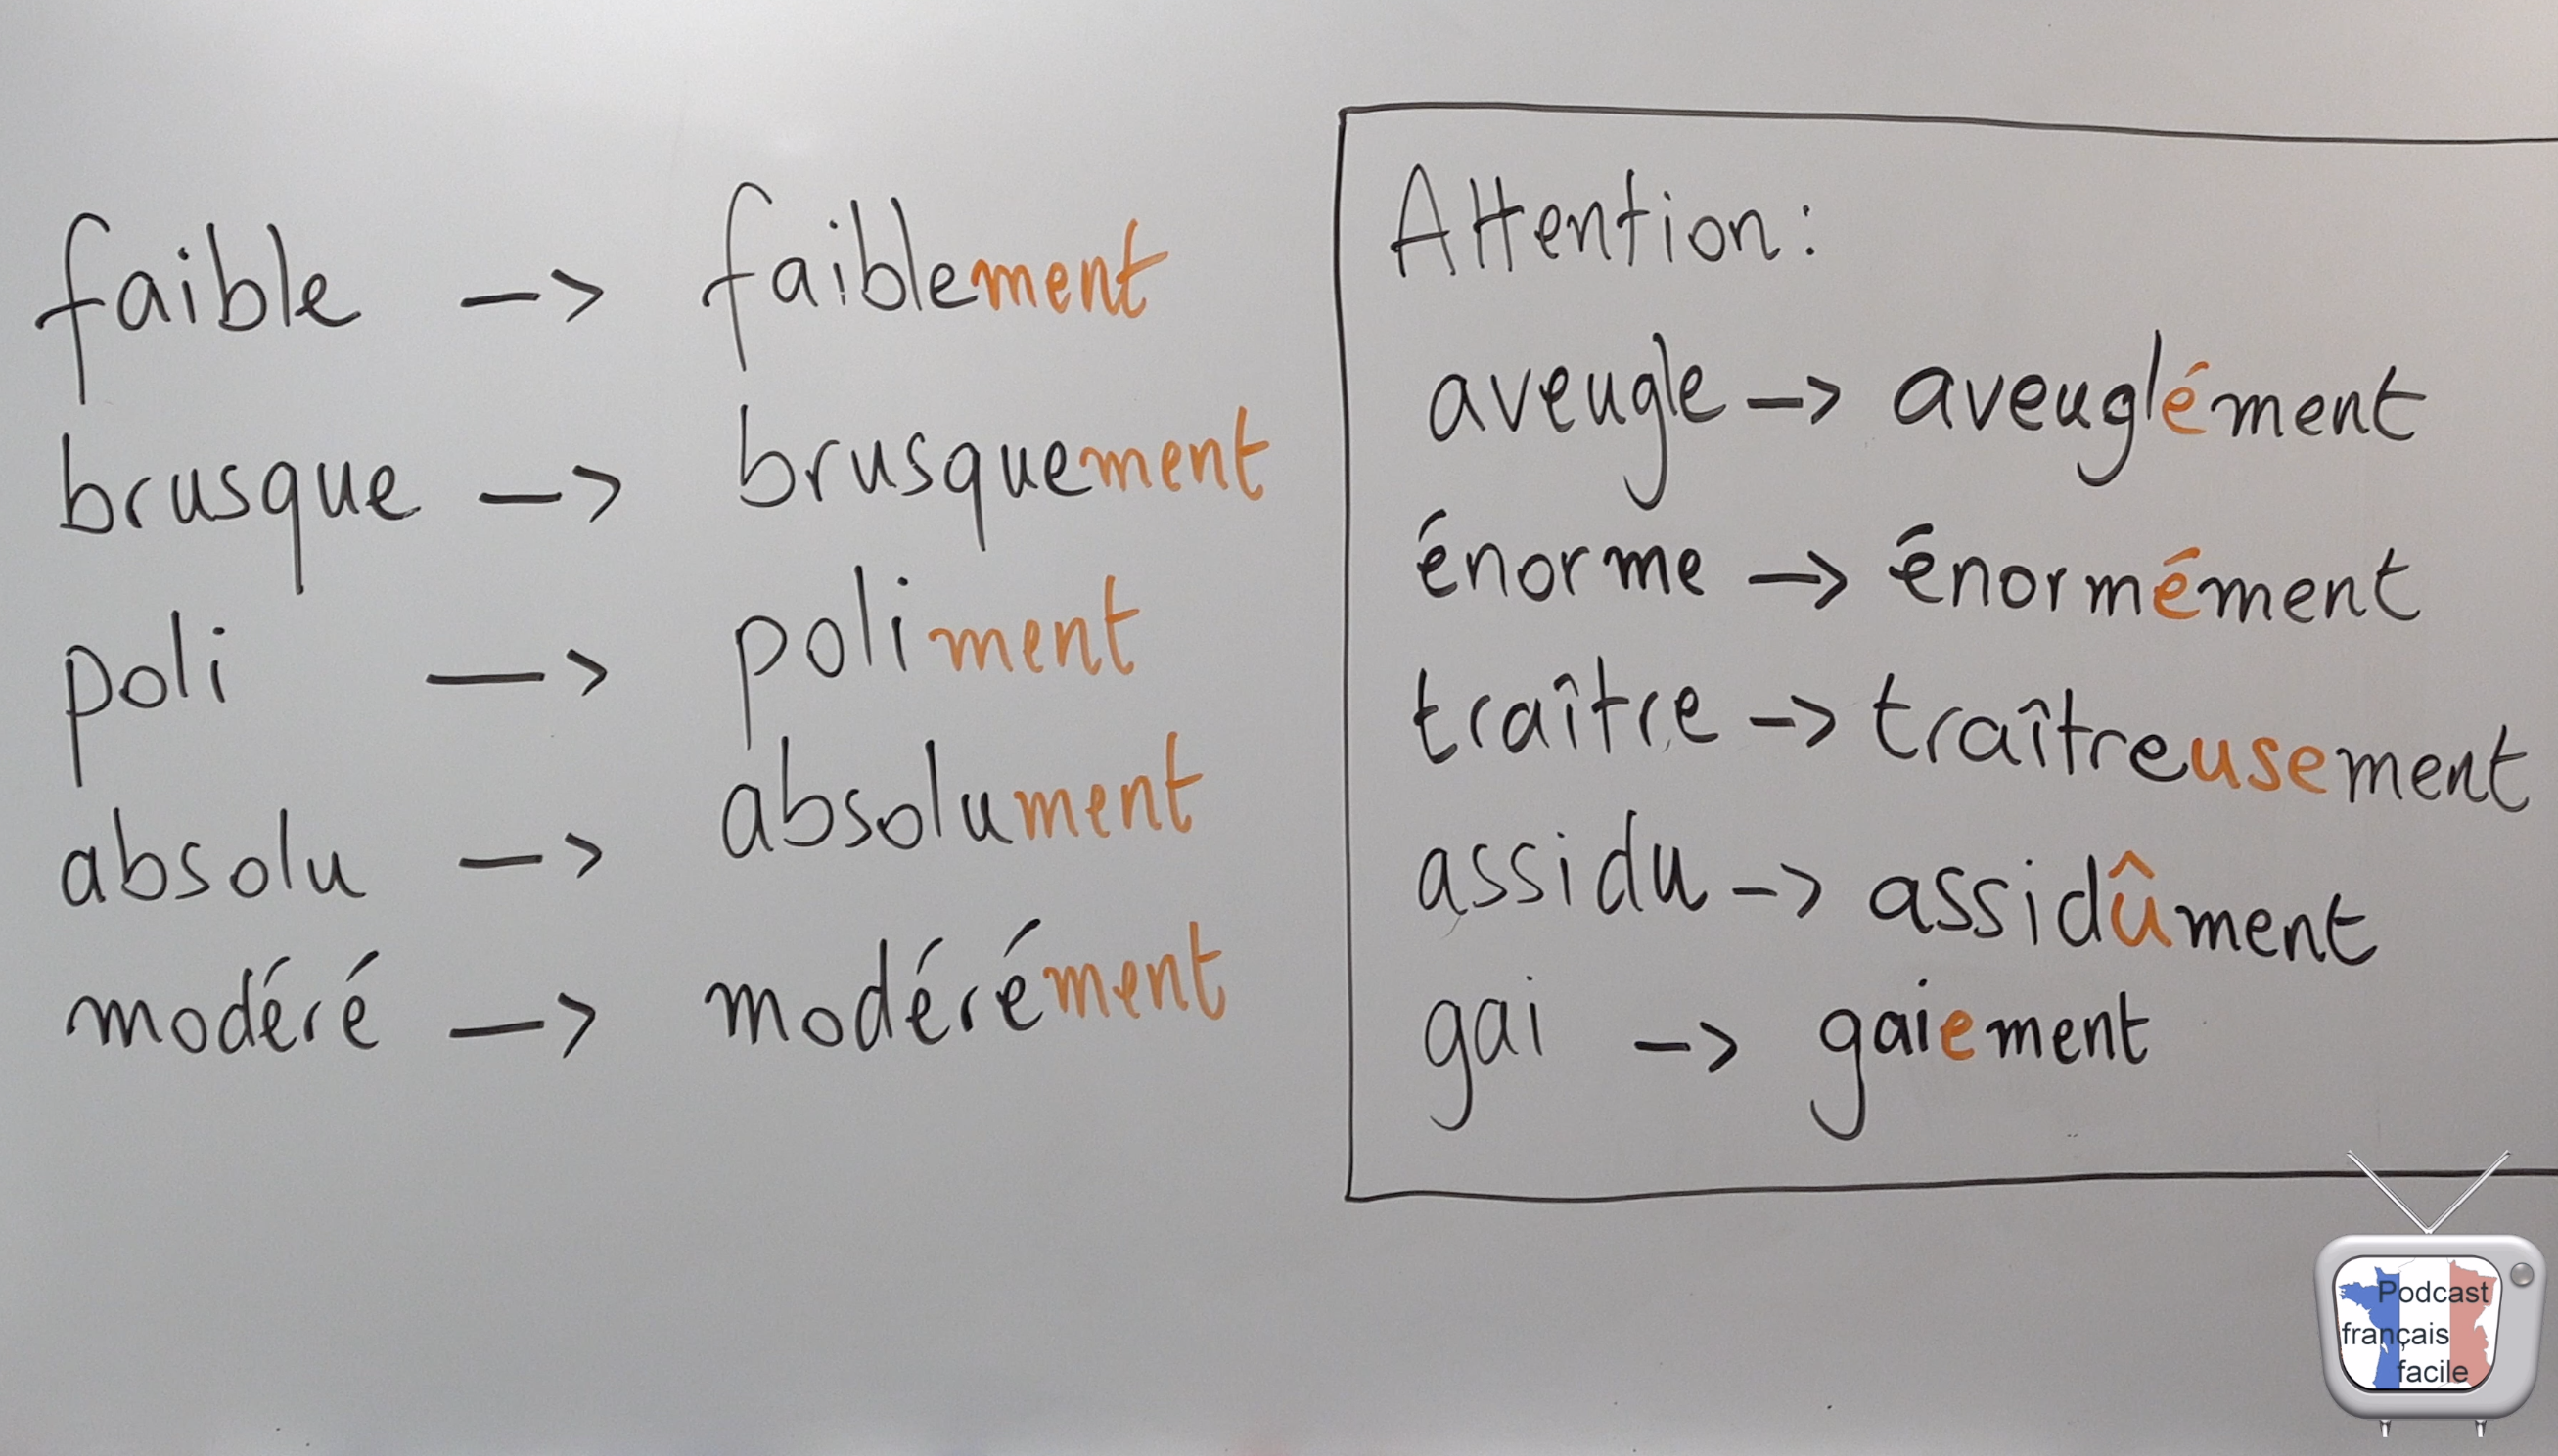 faible —> faiblement
brusque —> brusquement
poli —> poliment
absolu —> absolument
modéré —> modérément
Attention :
aveugle —> aveuglément
énorme —> énormément
traître —> traîtreusement
assidu —> assidûment
gai —> gaiement
Podcast
français
facile